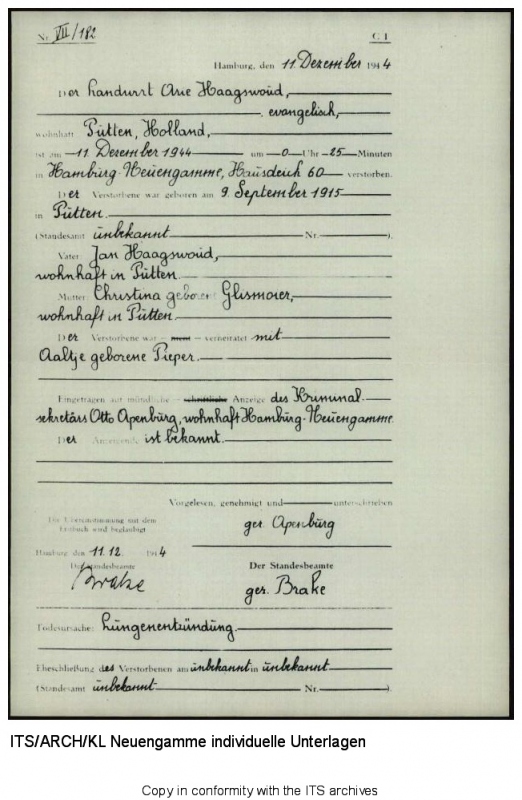 Nr. VII/182 C I
Hamburg, den 11. Dezember 1944
Der Landwirt Arie Haagswoüd,
evangelisch,
wohnhaft Pütten, Holland,
ist am 11. Dezember 1944 um 0 Uhr 25 Minuten
in Hamburg-Neüengamme, Haüsdeich 60 verstorben.
Der Verstorbene war geboren am 9. September 1915
in Pütten.
(Standesamt ünbekannt Nr. ).
Vater: Jan Haagswoüd,
wohnhaft in Pütten.
Mutter: Christina geborene Glismeier,
wohnhaft in Pütten.
Der Verstorbene war – nicht – verheiratet mit
Aaltje geborene Pieper.
Eingetragen auf mündliche – schriftliche – Anzeige des Kriminal-
sekretärs Otto Apenbürg, wohnhaft Hamburg-Neüengamme.
Der Anzeigende ist bekannt.
Vorgelesen, genehmigt und unterschrieben
Die Übereinstimmung mit dem
Erstbuch wird beglaubigt
gez. Apenbürg
Hamburg den 11.12. 1944
Der Standesbeamte Der Standesbeamte
Brake gez. Brake
Todesursache: Lüngenentzündüng.
Eheschließung des Verstorbenen am ünbekannt in ünbekannt
(Standesamt ünbekannt Nr. ).
ITS/ARCH/KL Neuengamme individuelle Unterlagen
Copy in conformity with the ITS archives